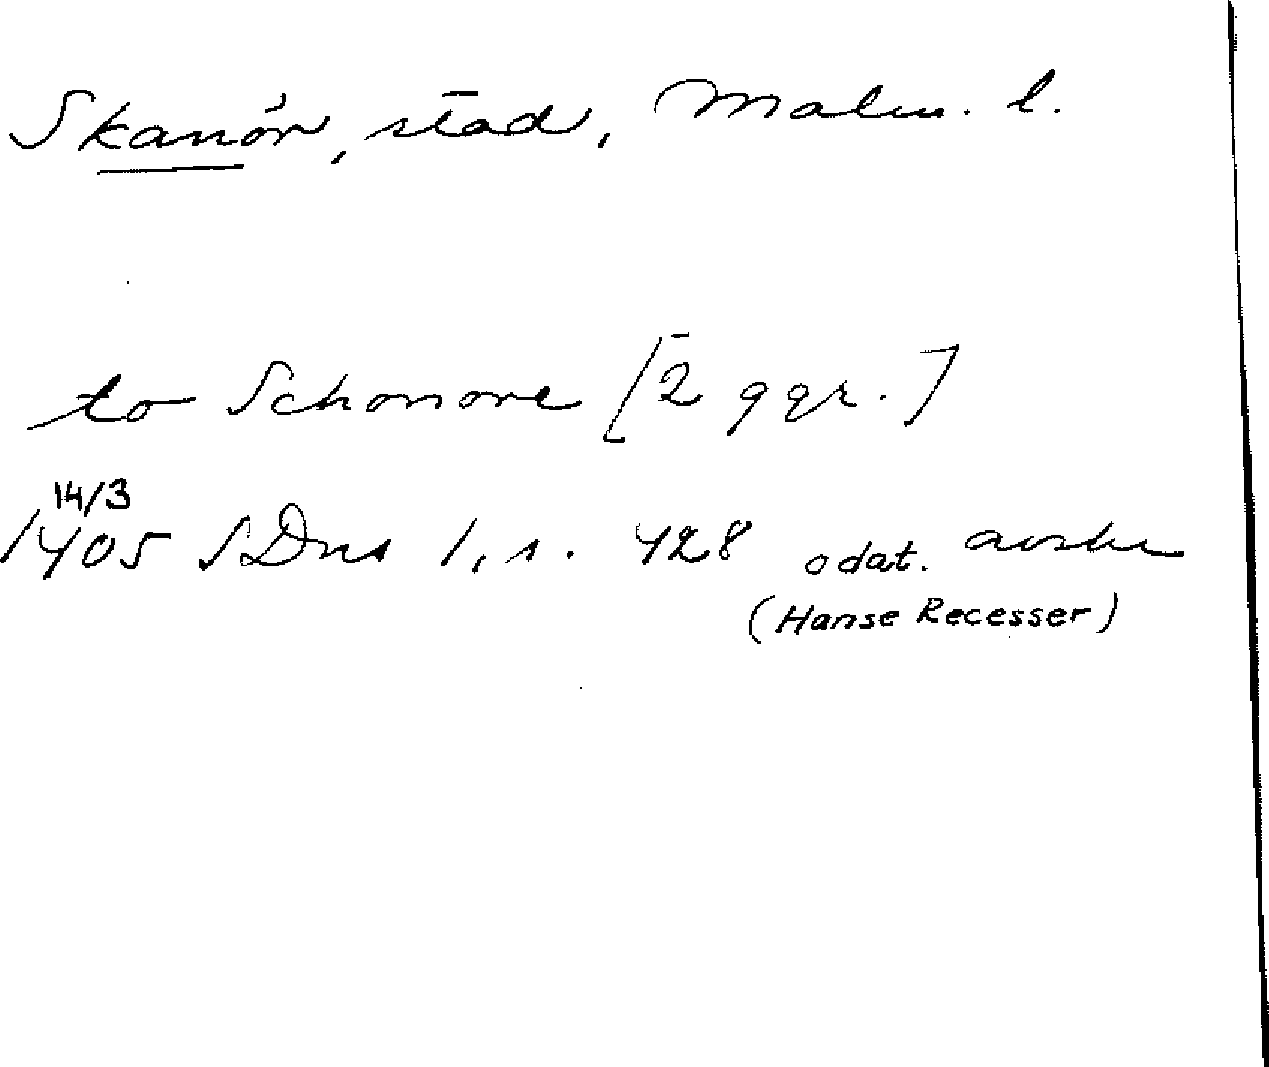 Skanör, stad, Malm. l.
to Schonore [2 ggr.]
14/3
1405 SDns 1, s. 428 odat. avskr
(Hanse Recesser)